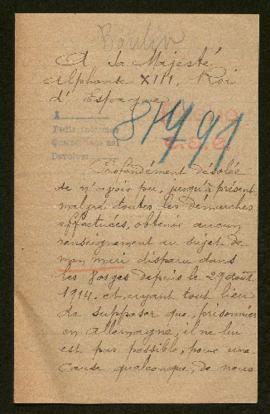 A Sa Majesté
Alphonse XIII, Roi
d'Espagne
81991
A
Pedir informes
Devolver
Profondément désolée
de n'avoir pu, jusqu'à présent
malgré toutes les démarches
effectuées, obtenir aucun
renseignement au sujet de
mon mari disparu dans
les Vosges depuis le 29 août
1914. et, ayant tout lieu
de supposer que, prisonnier
en Allemagne, il ne lui
est pas possible, pour une
cause quelconque, de nous